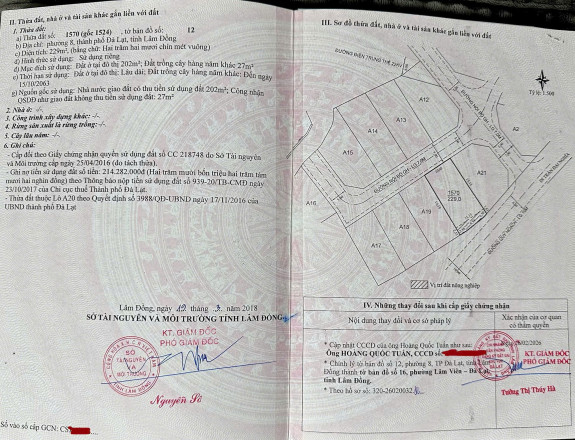 II. Thửa đất, nhà ở và tài sản khác gắn liền với đất
1. Thửa đất:
a) Thửa đất số: 1570 (gốc 1524), tờ bản đồ số: 12
b) Địa chỉ: phường 8, thành phố Đà Lạt, tỉnh Lâm Đồng
c) Diện tích: 229m², (bằng chữ: Hai trăm hai mươi chín mét vuông)
d) Hình thức sử dụng: Sử dụng riêng
đ) Mục đích sử dụng: Đất ở tại đô thị 202m²; Đất trồng cây hàng năm khác 27m²
e) Thời hạn sử dụng: Đất ở tại đô thị: Lâu dài; Đất trồng cây hàng năm khác: Đến ngày
15/10/2063
g) Nguồn gốc sử dụng: Nhà nước giao đất có thu tiền sử dụng đất 202m²; Công nhận
QSDĐ như giao đất không thu tiền sử dụng đất: 27m²
2. Nhà ở: -/-
3. Công trình xây dựng khác: -/-
4. Rừng sản xuất là rừng trồng: -/-
5. Cây lâu năm: -/-
6. Ghi chú:
- Cấp đổi theo Giấy chứng nhận quyền sử dụng đất số CC 218748 do Sở Tài nguyên
và Môi trường cấp ngày 25/04/2016 (do tách thửa).
- Ghi nợ tiền sử dụng đất số tiền: 214.282.000đ (Hai trăm mười bốn triệu hai trăm tám
mươi hai nghìn đồng) theo Thông báo nộp tiền sử dụng đất số 939-20/TB-CMĐ ngày
23/10/2017 của Chi cục thuế Thành phố Đà Lạt.
- Thửa đất thuộc Lô A20 theo Quyết định số 3988/QĐ-UBND ngày 17/11/2016 của
UBND thành phố Đà Lạt
Lâm Đồng, ngày tháng năm 2018
SỞ TÀI NGUYÊN VÀ MÔI TRƯỜNG TỈNH LÂM ĐỒNG
KT. GIÁM ĐỐC
PHÓ GIÁM ĐỐC
SỞ
TÀI NGUYÊN
VÀ
MÔI TRƯỜNG
Nguyễn Sĩ
Số vào sổ cấp GCN: CS
III. Sơ đồ thửa đất, nhà ở và tài sản khác gắn liền với đất
Tỷ lệ 1:500
A12
A13
A14
A15
A16
A17
A18
A19
A2
1570
229.0
Vị trí đất nông nghiệp
IV. Những thay đổi sau khi cấp giấy chứng nhận
Nội dung thay đổi và cơ sở pháp lý
Xác nhận của cơ quan
có thẩm quyền
* Cập nhật CCCD của ông Hoàng Quốc Tuấn như sau:
Ông HOÀNG QUỐC TUẤN, CCCD số
* Chỉnh lý tờ bản đồ số 12, phường 8, TP Đà Lạt, tỉnh Lâm
Đồng thành tờ bản đồ số 16, phường Lâm Viên – Đà Lạt,
tỉnh Lâm Đồng.
* Theo hồ sơ số: 320-26020032
/02/2026
KT. GIÁM ĐỐC
PHÓ GIÁM ĐỐC
Tướng Thị Thúy Hà